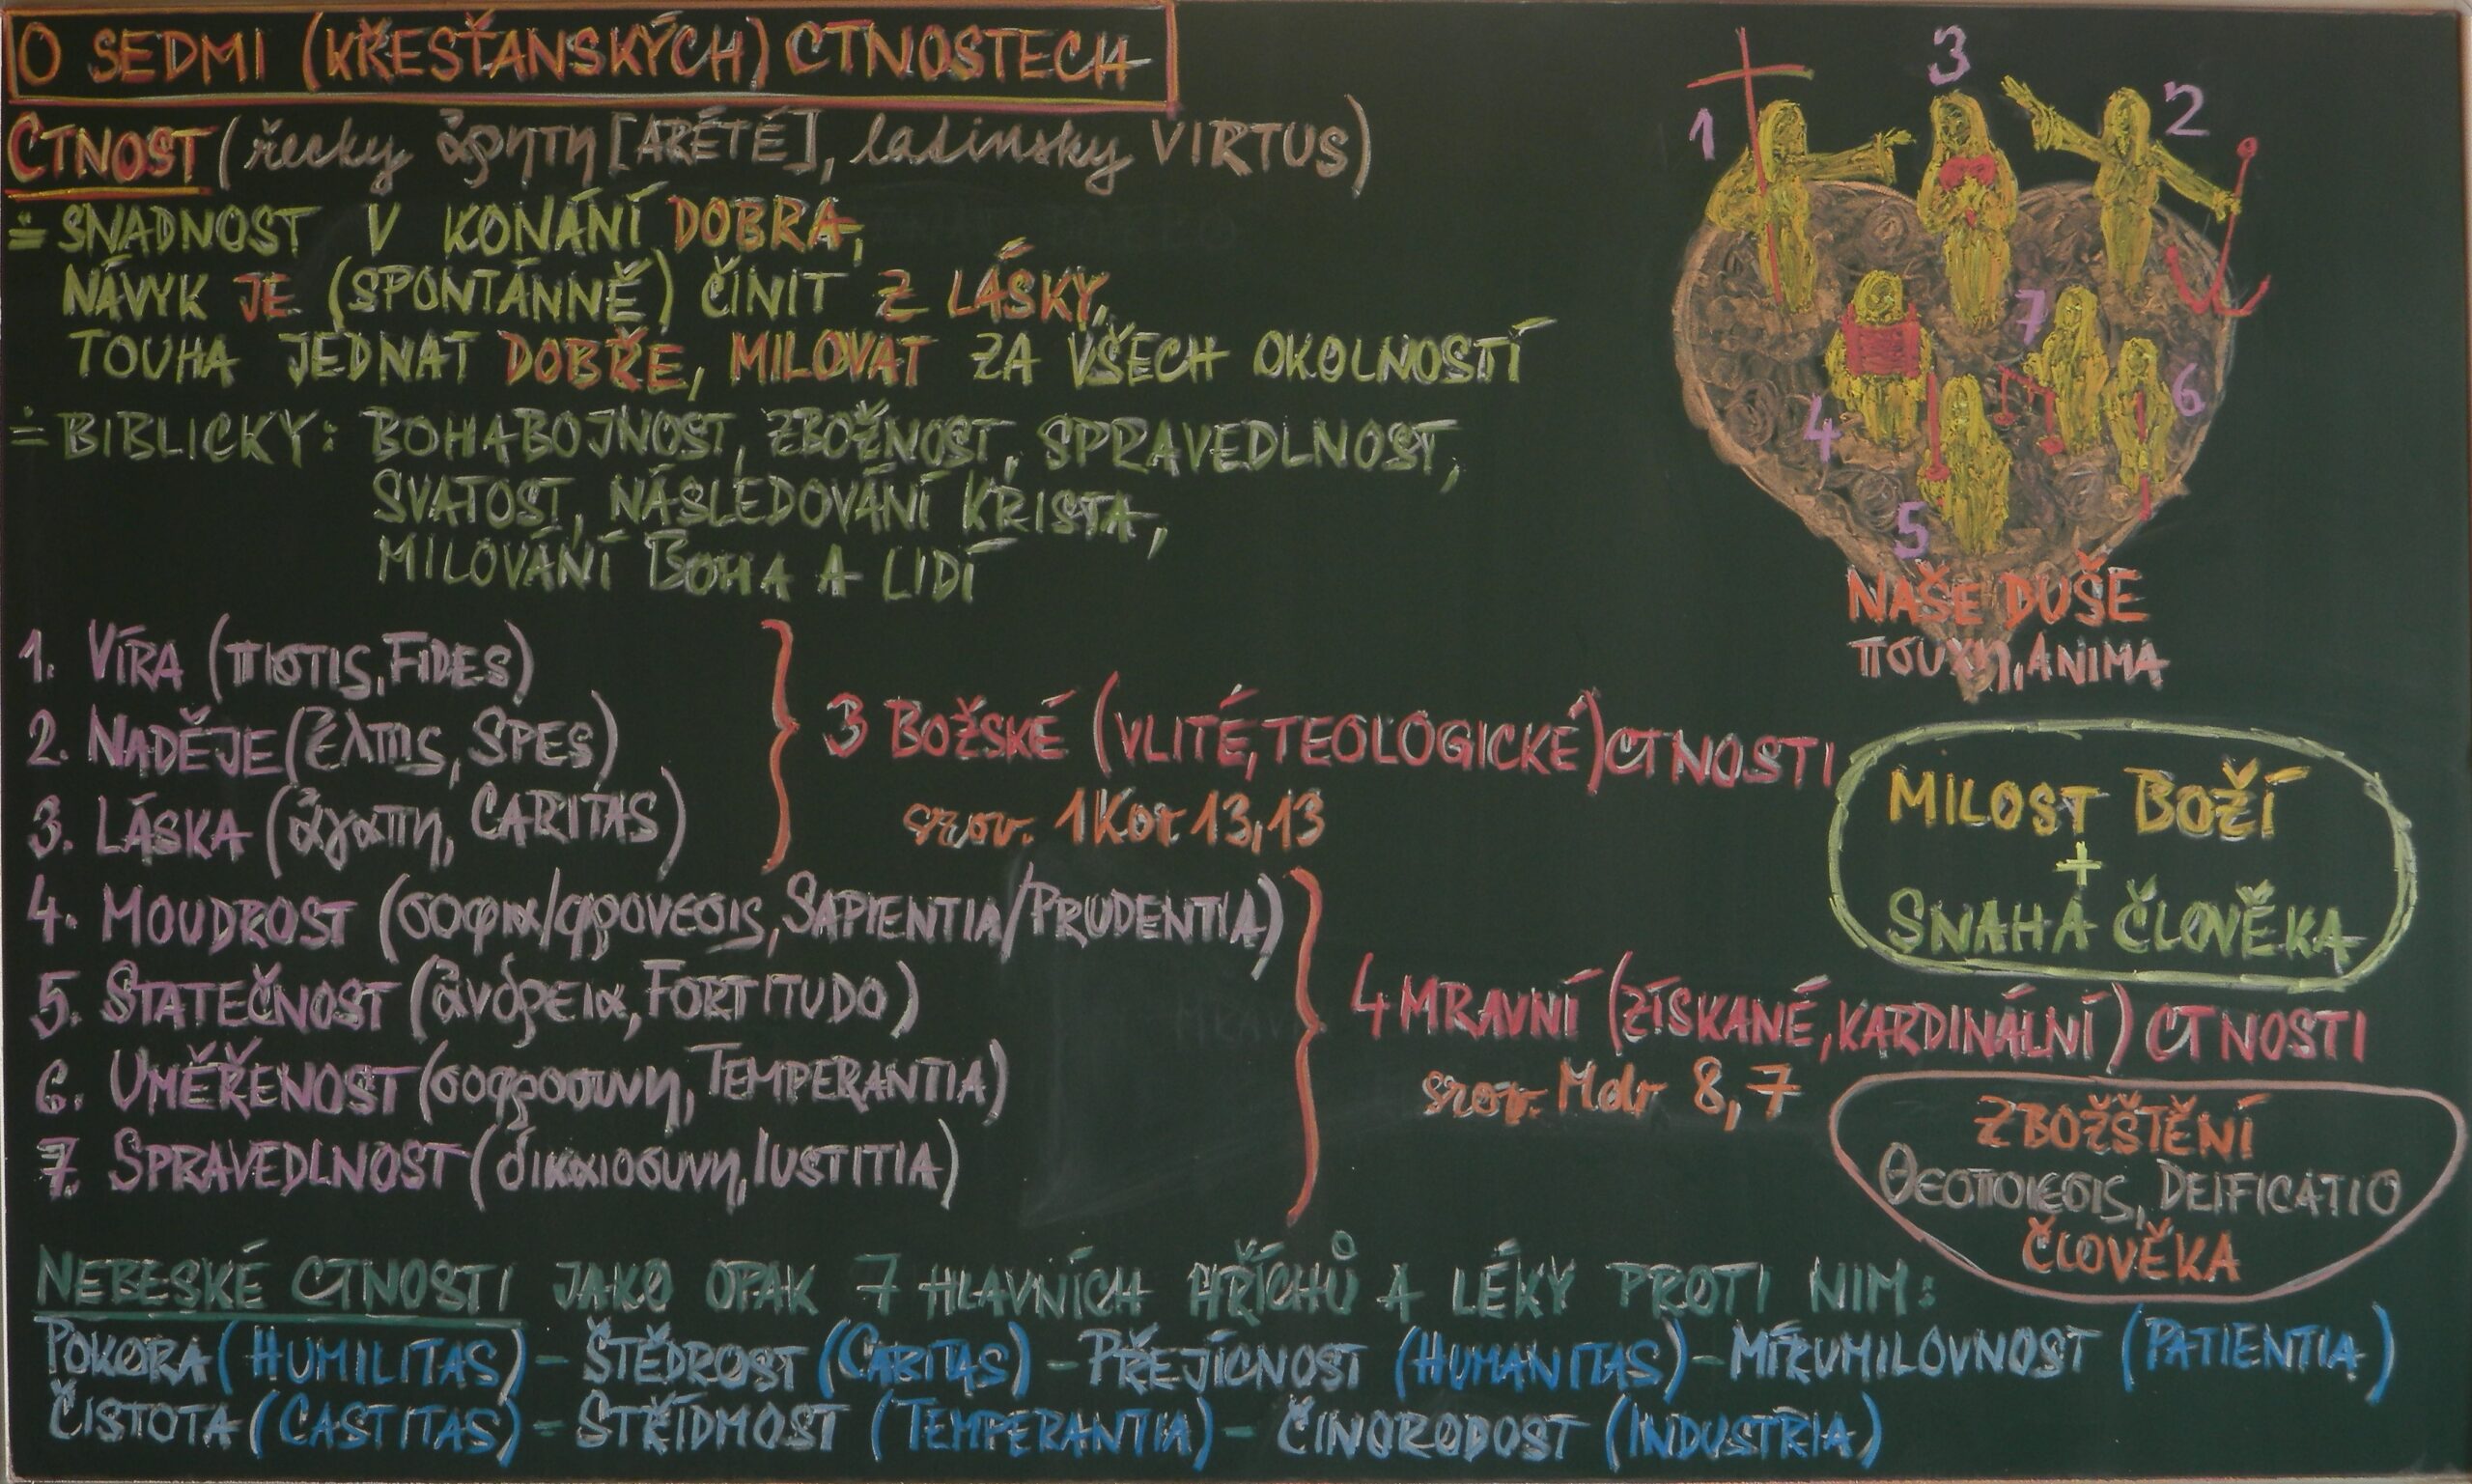 O SEDMI (KŘESŤANSKÝCH) CTNOSTECH
CTNOST (řecky ἀρητη [ARÉTÉ], latinsky VIRTUS)
= SNADNOST V KONÁNÍ DOBRA,
NÁVYK JE (SPONTÁNNĚ) ČINIT Z LÁSKY,
TOUHA JEDNAT DOBŘE, MILOVAT ZA VŠECH OKOLNOSTÍ
= BIBLICKY: BOHABOJNOST, ZBOŽNOST, SPRAVEDLNOST,
SVATOST, NÁSLEDOVÁNÍ KRISTA,
MILOVÁNÍ BOHA A LIDÍ
1 3 2
7
4 6
5
NAŠE DUŠE
πσυχη, ANIMA
1. VÍRA (πιστις, FIDES)
2. NADĚJE (ἐλπις, SPES)
3. LÁSKA (ἀγαπη, CARITAS)
3 BOŽSKÉ (VLITÉ, TEOLOGICKÉ) CTNOSTI
srov. 1Kor 13,13
MILOST BOŽÍ
+
SNAHA ČLOVĚKA
4. MOUDROST (σοφια/φρονεσις, SAPIENTIA/PRUDENTIA)
5. STATEČNOST (ἀνδρεια, FORTITUDO)
6. UMĚŘENOST (σοφροσυνη, TEMPERANTIA)
7. SPRAVEDLNOST (δικαιοσυνη, IUSTITIA)
4 MRAVNÍ (ZÍSKANÉ, KARDINÁLNÍ) CTNOSTI
srov. Mdr 8,7
ZBOŽŠTĚNÍ
Θεοποιεσις, DEIFICATIO
ČLOVĚKA
NEBESKÉ CTNOSTI JAKO OPAK 7 HLAVNÍCH HŘÍCHŮ A LÉKY PROTI NIM:
POKORA (HUMILITAS) – ŠTĚDROST (CARITAS) – PŘEJÍCNOST (HUMANITAS) – MÍRUMILOVNOST (PATIENTIA)
ČISTOTA (CASTITAS) – STŘÍDMOST (TEMPERANTIA) – ČINORODOST (INDUSTRIA)